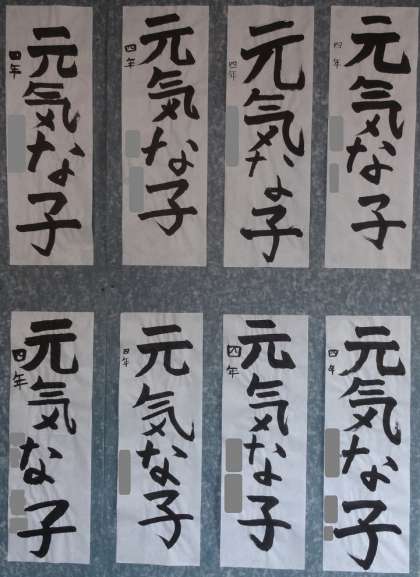 元気な子
四年
元気な子
四年
元気な子
四年
元気な子
四年
元気な子
四年
元気な子
四年
元気な子
四年
元気な子
四年